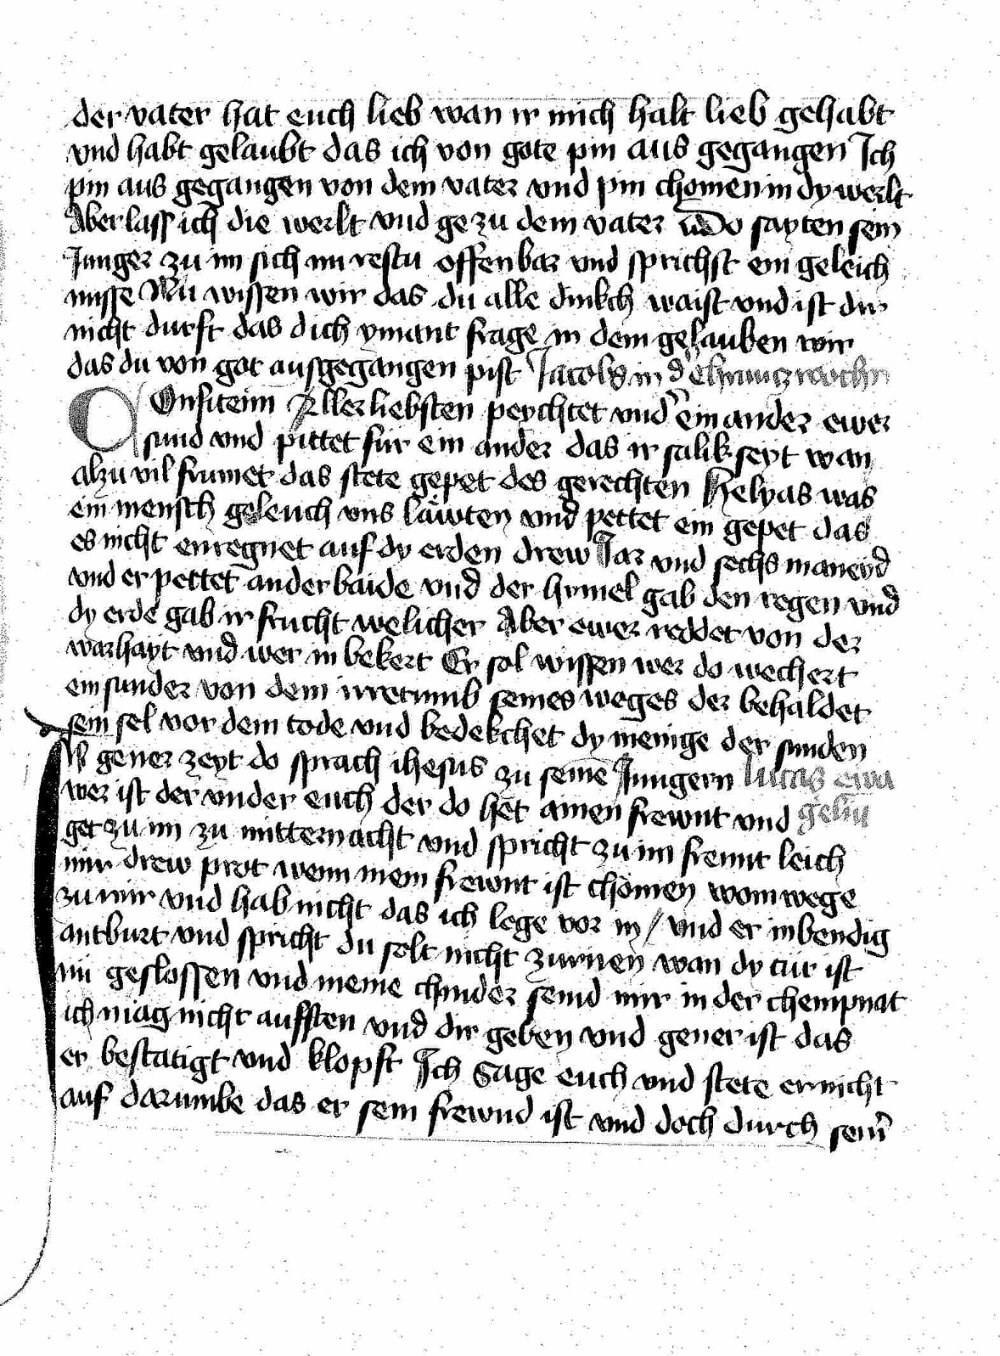 der vater hat euch lieb wan ir mich habt lieb gehabt
vnd habt gelaubt das ich von gote pin aus gegangen Ich
pin aus gegangen von dem vater vnd pin chomen in dy werlt
Aber lass ich die werlt vnd ge zu dem vater Do sayten sein
Junger zu im sich nu restu offenbar vnd sprichst ein geleich
nusse Nu wissen wir das du alle dinkch waist vnd ist dir
nicht durft das dich ymant frage in dem gelauben wir
das du von got ausgegangen pist Jacobs in d' chrawtzwochn
COnfitemi Aller liebsten peychtet vnd' ein ander ewer
sund vnd pittet fur ein ander das ir salik seyt wan
alzu vil frumet das stete gepet des gerechten Helyas was
ein mensch geleich vns läwten vnd pettet ein gepet das
es nicht enregnet auf dy erden drew Jar vnd sechs maneyd
vnd er pettet anderbaide vnd der hymel gab den regen vnd
dy erde gab ir frucht welicher Aber ewer reddet von der
warhayt vnd wer in bekert Er sol wissen wer do wechert
ein sunder von dem irretumb seines weges der behaldet
sein sel vor dem tode vnd bedekchet dy menige der sunden
IN gener zeyt do sprach ihesus zu seinē Jungern lucas ewa
wer ist der vnder euch der do het ainen frewnt vnd geliu
get zu im zu mitternacht vnd spricht zu im freunt leich
mir drew prot wenn mein frewnt ist chomen vom wege
zu mir vnd hab nicht das ich lege vor in / vnd er inbendig
antburt vnd spricht du solt nicht zurnen wan dy tür ist
nu geslossen vnd meine chinder seind mir in der chempnat
ich mag nicht aufsten vnd dir geben vnd gener ist das
er bestatigt vnd klopft Ich Sage euch vnd stete er nicht
auf darumbe das er sein frewnd ist vnd doch durch sein'